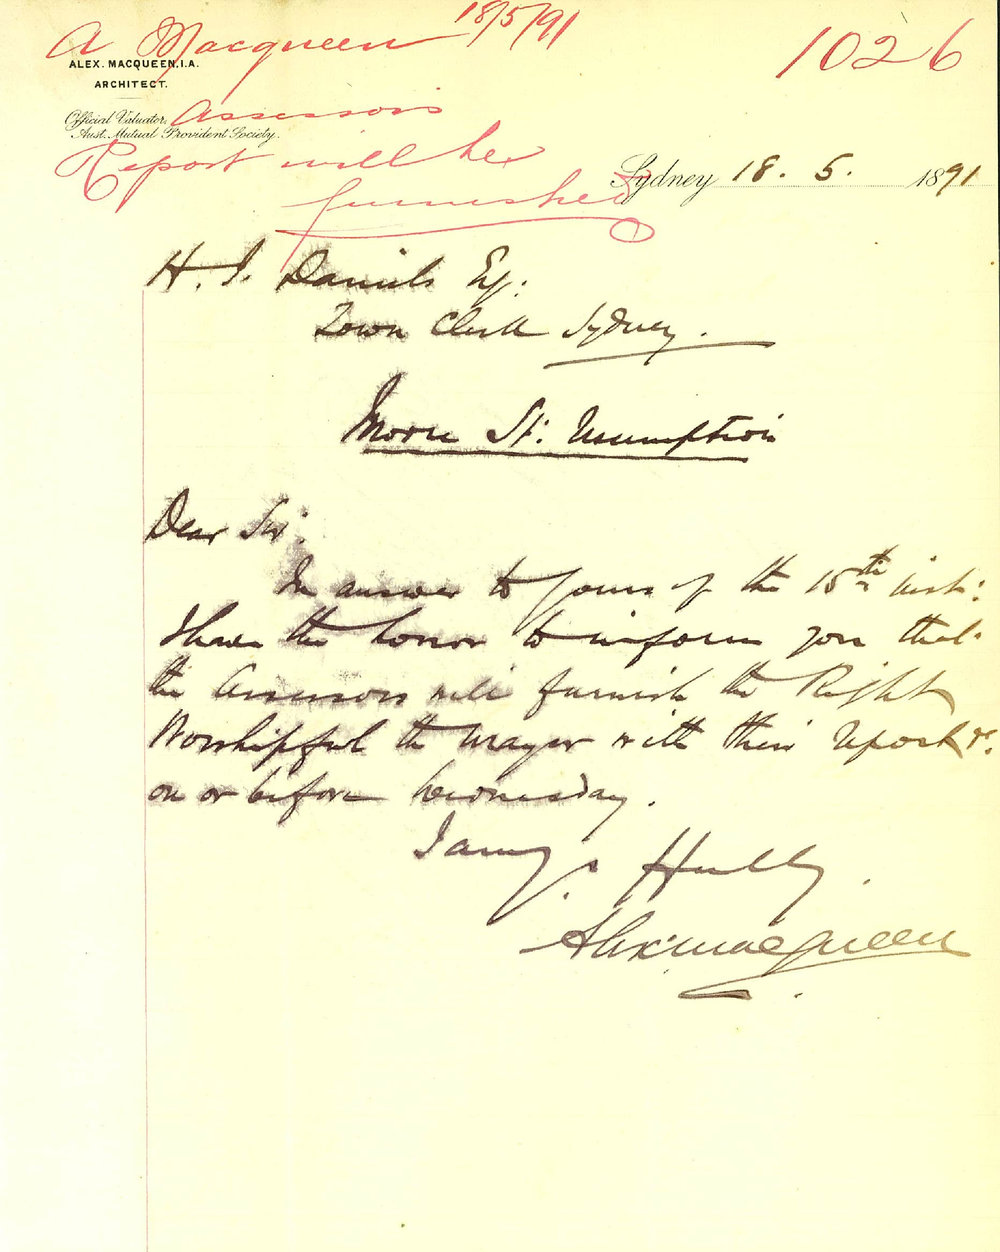 A Macqueen 18/5/91
1026
ALEX. MACQUEEN, I.A.
ARCHITECT.
Official Valuator,
Aust. Mutual Provident Society.
Assessors
Report will be
furnished
Sydney 18. 5. 1891
H. J. Daniels Esq:
Town Clerk Sydney.
Moore St: Resumption
Dear Sir:
In answer to yours of the 15th inst:
I have the honor to inform you that
the Assessors will furnish the Right
Worshipful the Mayor with their report &c.
on or before Wednesday.
I am yrs. Hully.
Alex: Macqueen